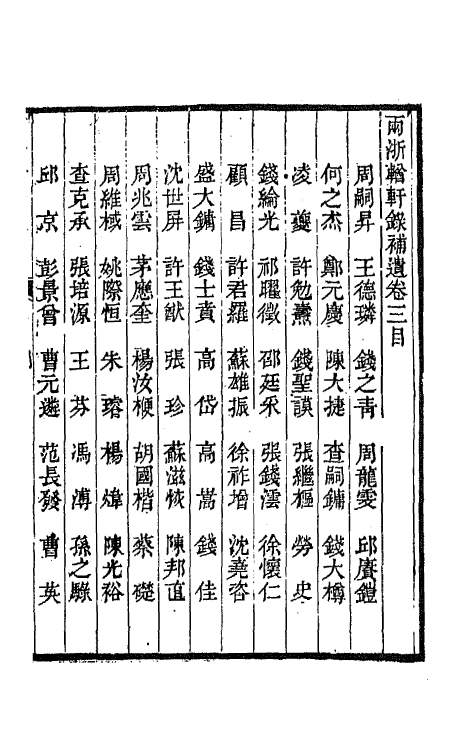 兩浙輶軒錄補遺卷三目
周嗣昇 王德璘 錢之青 周龍雯 邱賡鎧
何之杰 鄭元慶 陳大捷 查嗣鏞 錢大樽
凌夔 許勉燾 錢聖謨 張繼樞 勞史
錢綸光 祁曜徵 邵廷采 張錢澐 徐懷仁
顧昌 許君羅 蘇雄振 徐祚增 沈堯咨
盛大鏞 錢士賁 高岱 高嵩 錢佳
沈世屏 許王猷 張珍 蘇滋恢 陳邦直
周兆雲 茅應奎 楊汝楩 胡國楷 蔡礎
周維棫 姚際恒 朱瑢 楊煒 陳光裕
查克承 張培源 王芬 馮溥 孫之騄
邱京 彭景曾 曹元遴 范長發 曹英